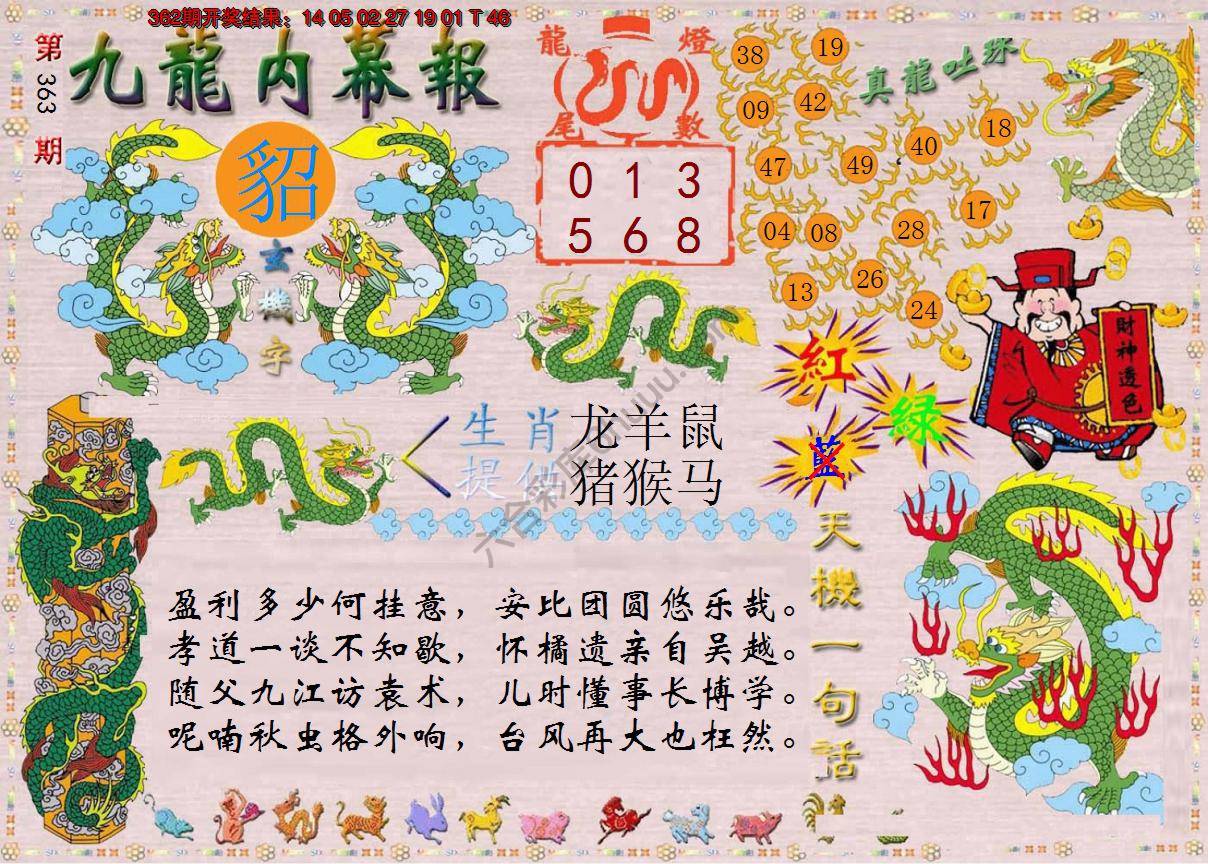 362期开奖结果：14 05 02 27 19 01 T 46
第363期
九龍内幕報
貂
玄機字
龍燈
尾數
0 1 3
5 6 8
真龍吐珠
38 19
09 42
47 49 40 18
04 08 28 17
13 26 24
財神透色
紅
綠
藍
生肖 龙羊鼠
提供 猪猴马
天機一句話
盈利多少何挂意，安比团圆悠乐哉。
孝道一谈不知歇，怀橘遗亲自吴越。
随父九江访袁术，儿时懂事长博学。
呢喃秋虫格外响，台风再大也枉然。